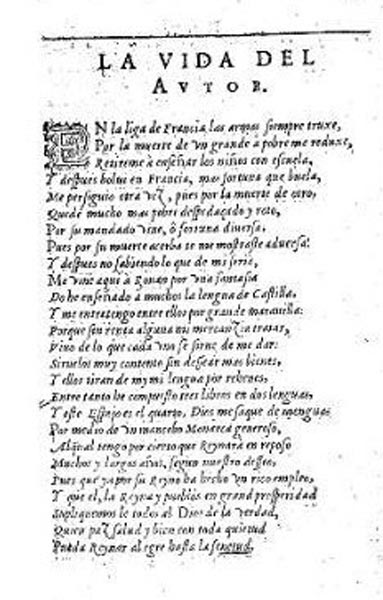 LA VIDA DEL
AVTOR.
EN la liga de Francia las armas siempre truxe,
Por la muerte de vn grande a pobre me reduxe,
Retireme à enseñar los niños con escuela,
Y despues bolui en Francia, mas fortuna que buela,
Me persiguio otra vez, pues por la muerte de otro,
Quedé mucho mas pobre despedaçado y roto,
Por su mandado vine, ô fortuna diuersa.
Pues por su muerte acerba te me mostraste aduersa:
Y despues no sabiendo lo que de mi seria,
Me vine aqui à Roan por vna fantasia
Do he enseñado à muchos la lengua de Castilla,
Y me entretengo entre ellos por grande marauilla:
Porque sin renta alguna ni mercanzia tratar,
Viuo de lo que cada vno se sirue de me dar:
Siruolos muy contento sin desear mas bienes,
Y ellos tiran de my mi lengua por rehenes,
Entre tanto he compuesto tres libros en dos lenguas,
Y este Espejo es el quarto, Dios me saque de menguas
Por medio de vn mancebo Monarca generoso,
Alqual tengo por cierto que Reynarà en reposo
Muchos y largos años, segun nuestro desseo,
Pues que ya por su Reyno ha hecho vn rico empleo,
Y que el, la Reyna y pueblos en grand prosperidad
Supliquemos le todos al Dios de la verdad,
Quien paz salud y bien con toda quietud
Pueda Reynar alegre hasta la senetud.